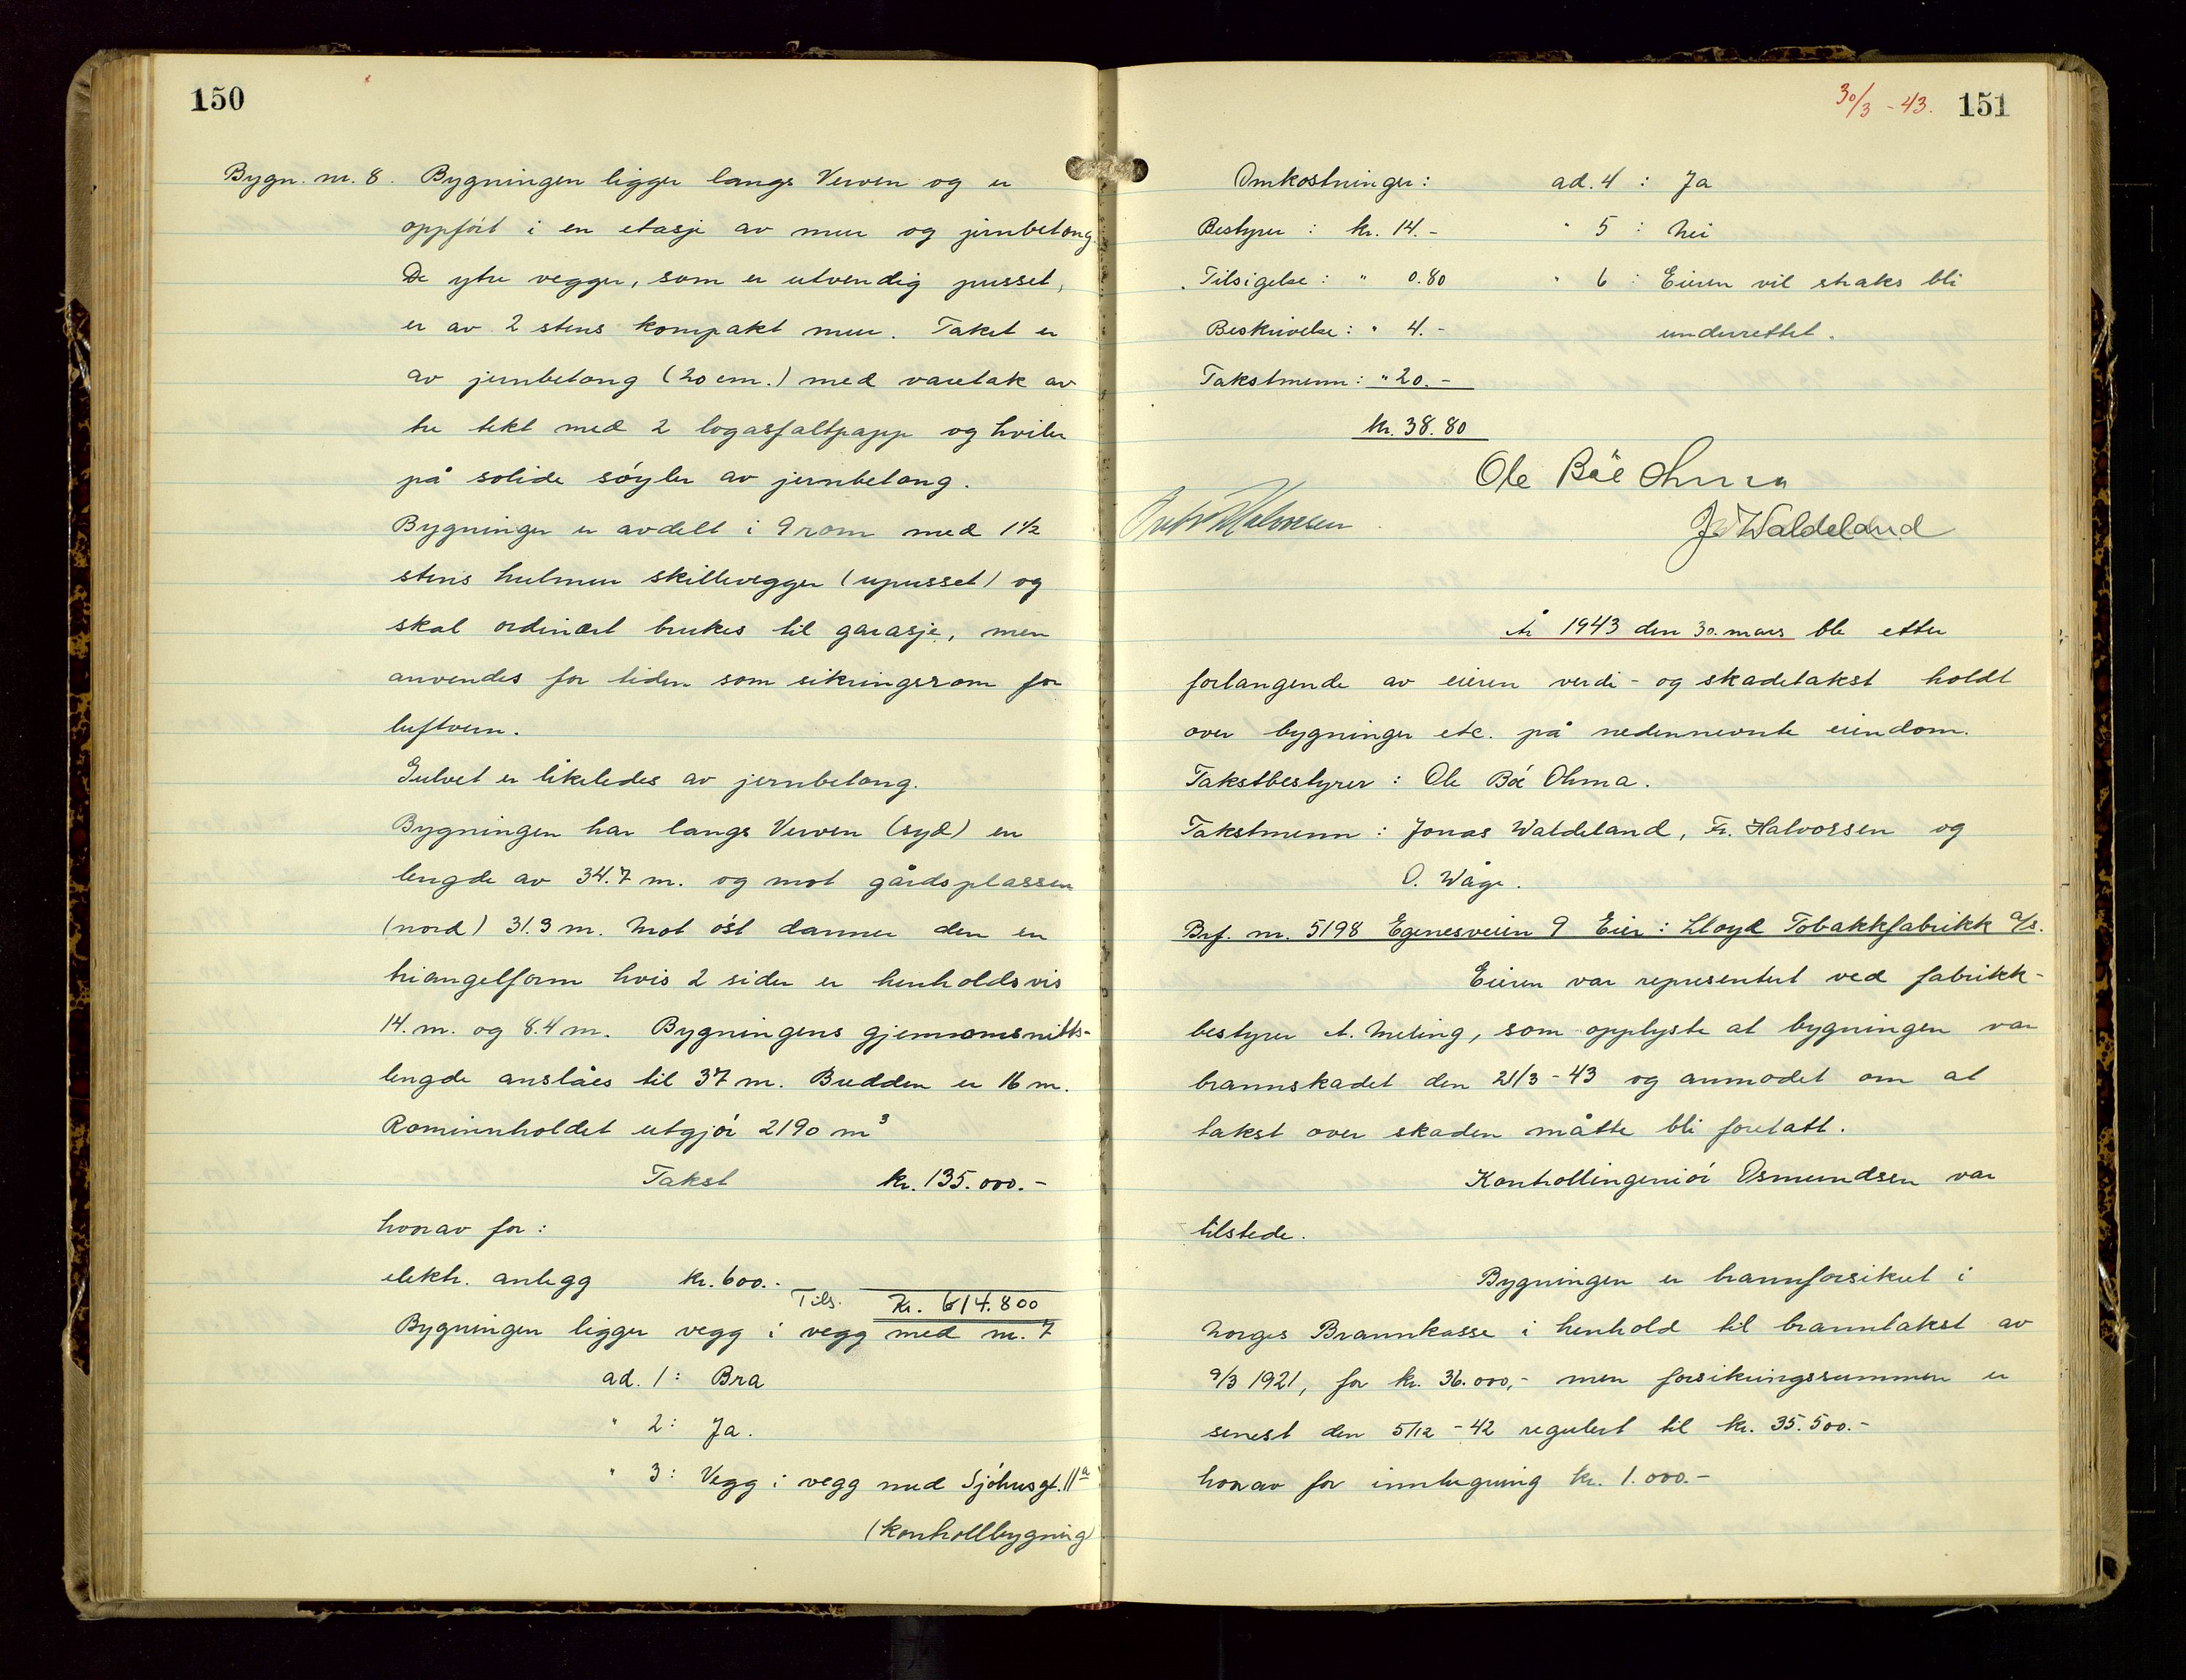 150
Bygn. nr. 8. Bygningen ligger langs Verven og er
oppført i en etasje av mur og jernbetong.
De ytre vegger, som er utvendig pusset,
er av 2 stens kompakt mur. Taket er
av jernbetong (20 cm.) med varetak av
tre tekt med 2 lagasfaltpapp og hviler
på solide søyler av jernbetong.
Bygningen er avdelt i 9 rom med 1 1/2
stens hulmur skillevegger (upusset) og
skal ordinært brukes til garasje, men
anvendes for tiden som sikringsrom for
luftvern.
Gulvet er likeledes av jernbetong.
Bygningen har langs Verven (syd) en
lengde av 34.7 m. og mot gårdsplassen
(nord) 31.3 m. Mot øst danner den en
triangelform hvis 2 sider er henholdsvis
14. m. og 8.4 m. Bygningens gjennomsnitts-
lengde anslåes til 37 m. Bredden er 16 m.
Rominnholdet utgjør 2190 m³
Takst kr. 135.000.-
hvorav for:
elektr. anlegg kr. 600.-
Tils. Kr. 614.800
Bygningen ligger vegg i vegg med nr. 7
ad. 1: Bra
" 2: Ja.
" 3: Vegg i vegg med Sjøhusgt. 11a
(kontrollbygning)
30/3 - 43. 151
Omkostninger: ad. 4 : Ja
Bestyrer : kr. 14.- " 5 : Nei
Tilsigelse : " 0.80 " 6 : Eieren vil straks bli
Beskrivelse : " 4.- underrettet.
Takstmenn : " 20.-
kr. 38.80
Ole Bøe Ohma
Halvorsen
J. Waldeland
År 1943 den 30. mars ble etter
forlangende av eieren verdi- og skadetakst holdt
over bygninger etc. på nedennevnte eiendom.
Takstbestyrer : Ole Bøe Ohma.
Takstmenn : Jonas Waldeland, Fr. Halvorsen og
O. Wåge.
Brf. nr. 5198 Egenesveien 9 Eier : Lloyd Tobakkfabrikk a/s.
Eieren var representert ved fabrikk-
bestyrer A. Meling, som opplyste at bygningen var
brannskadet den 21/3 - 43 og anmodet om at
takst over skaden måtte bli foretatt.
Kontrollingeniør Osmundsen var
tilstede.
Bygningen er brannforsikret i
Norges Brannkasse i henhold til branntakst av
9/3 1921, for kr. 36.000,- men forsikringssummen er
senest den 5/12 - 42 regulert til kr. 35.500.-
hvorav for innhegning kr. 1.000.-